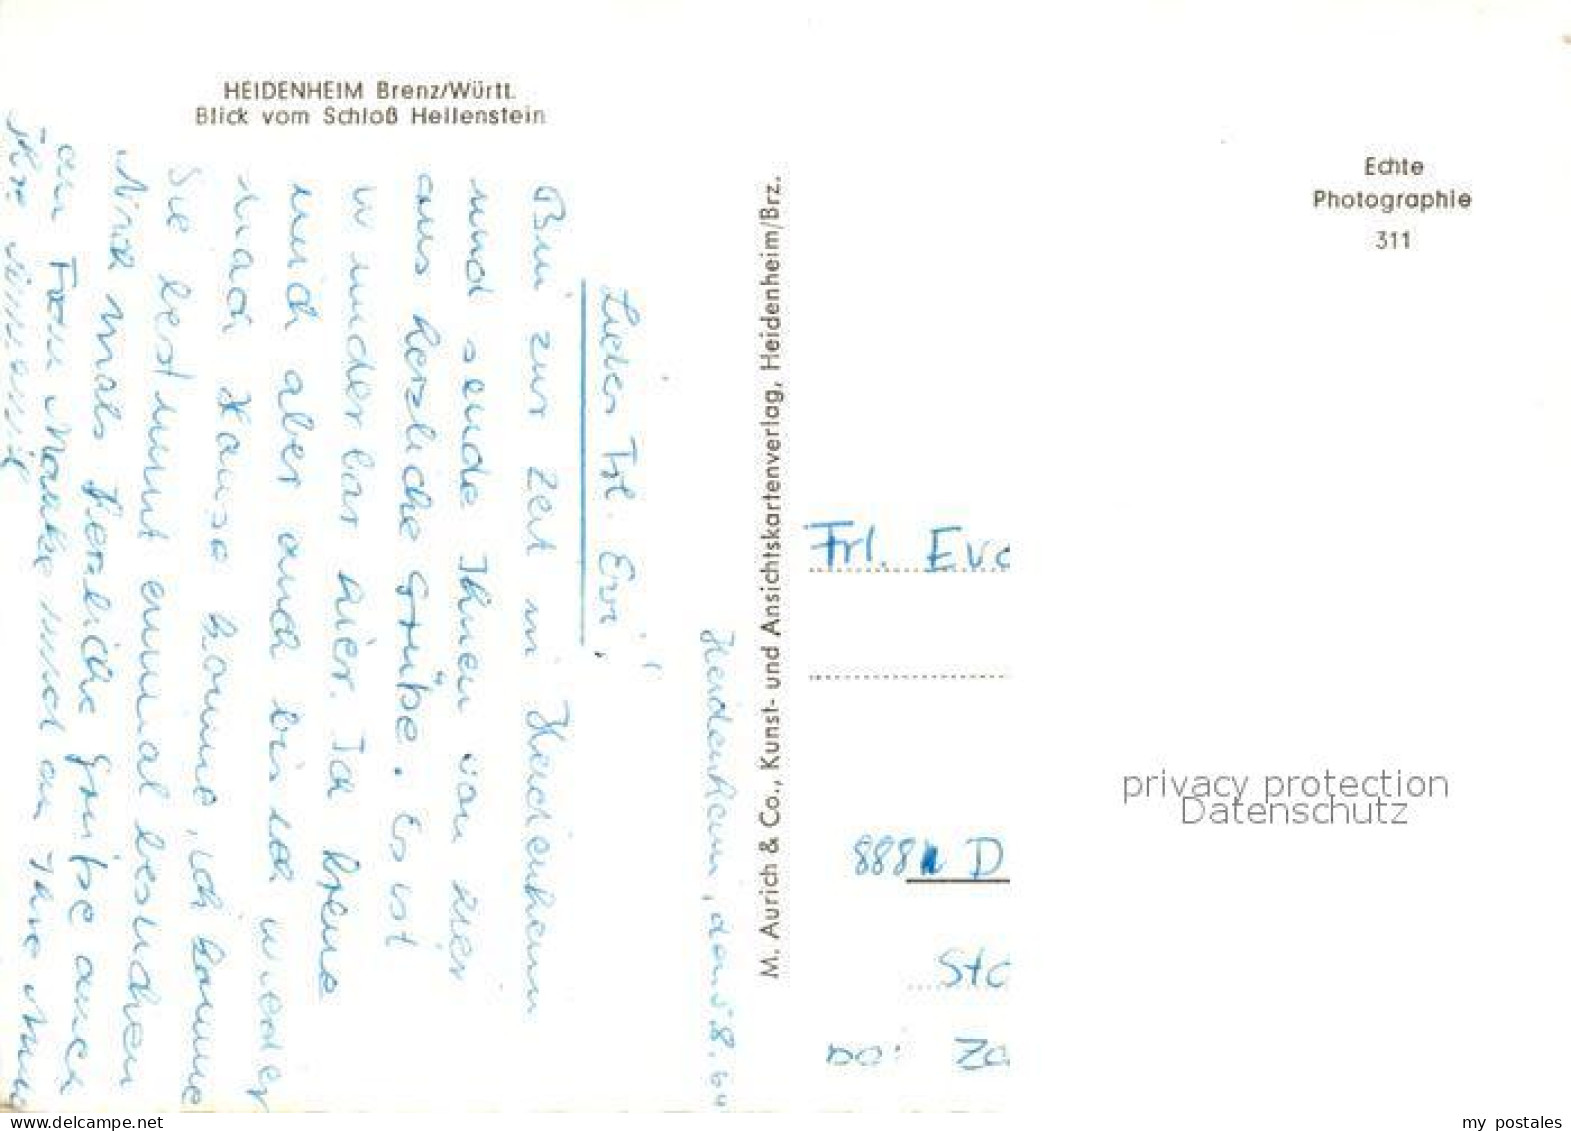 HEIDENHEIM Brenz/Württ.
Blick vom Schloß Hellenstein
Heidenheim, den 5.8.64
Liebes Frl. Evi,
Bin zur Zeit in Heidenheim
und sende Ihnen von hier
aus herzliche Grüße. Es ist
wunderbar hier. Ich freue
mich aber auch bis ich wieder
nach Hause komme, ich komme
Sie bestimmt einmal besuchen
Noch mals herzliche Grüße auch
an Frau und an Ihre
Ihre
M. Aurich & Co., Kunst- und Ansichtskartenverlag, Heidenheim/Brz.
Echte
Photographie
311
Frl. Eva
888 D
Sta
bei: Za
privacy protection
Datenschutz
my_postales